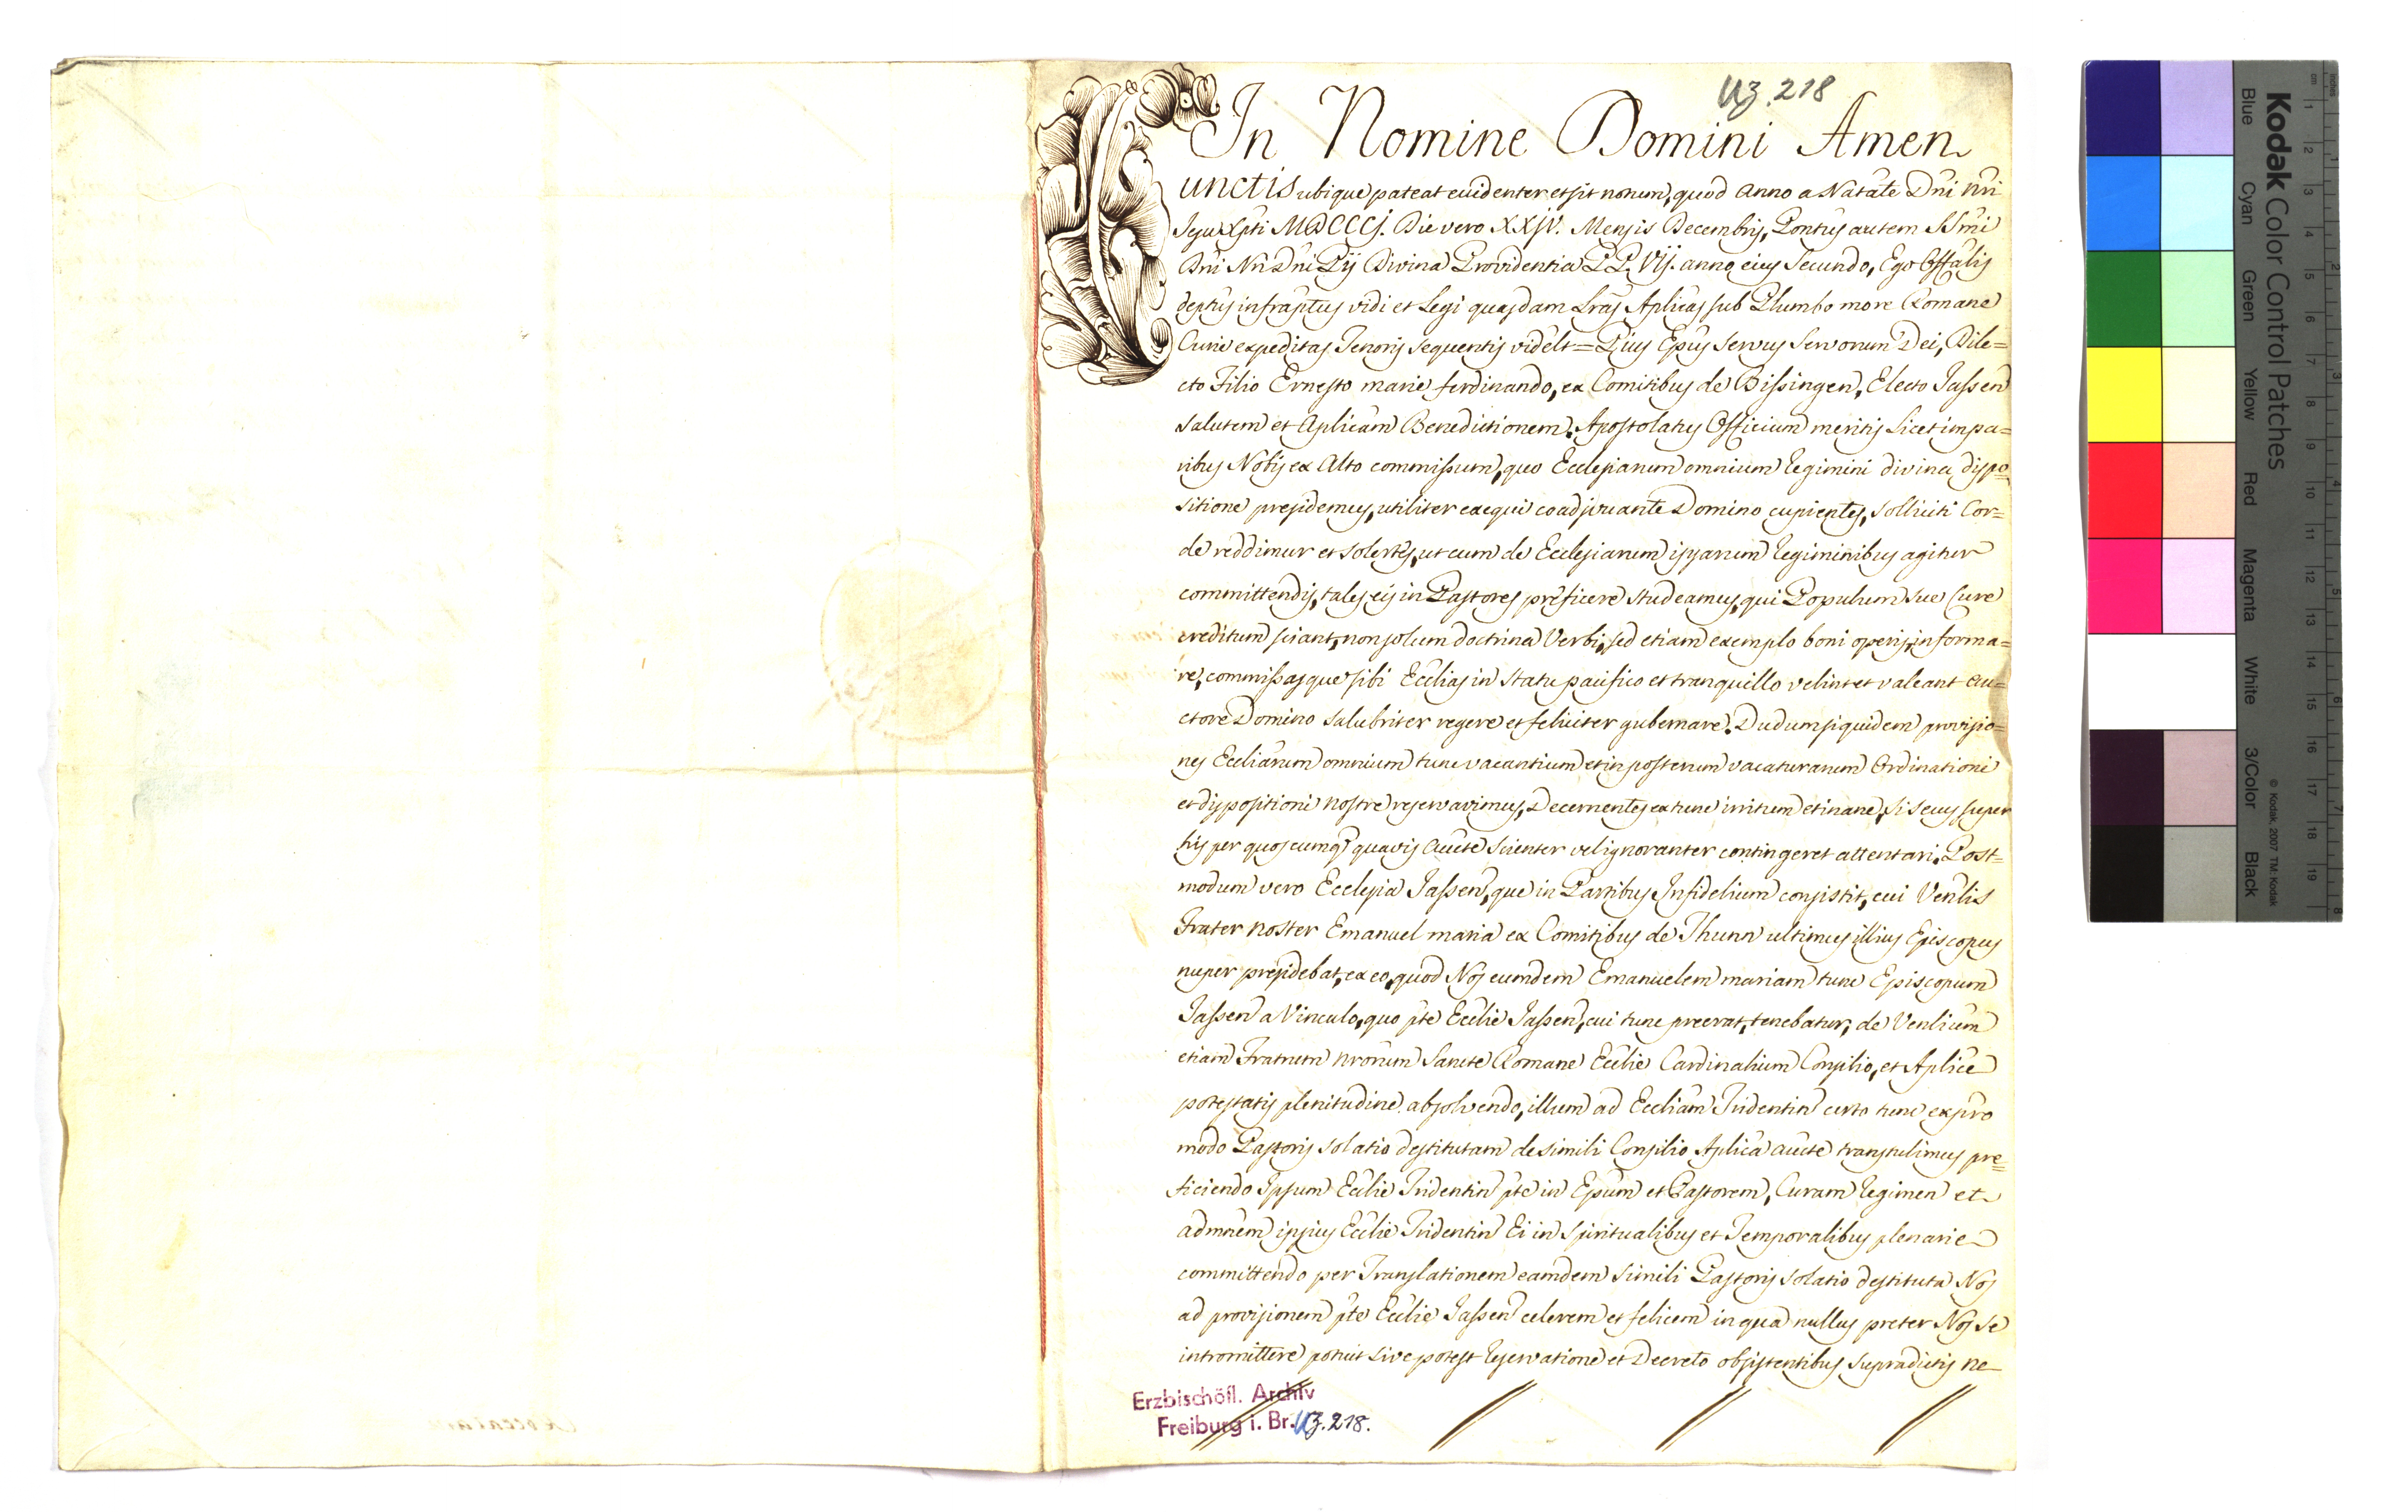 Uz. 218
In Nomine Domini Amen
Cunctis ubique pateat evidenter et sit notum, quod anno a Natãte Dñi Nri
Jesu Xpti MDCCCj. Die vero XXjV. Mensis Decembris, Pontus autem SSmi
Dñi Nri Dñi Pij Divina Providentia PP. Vij. anno eius Secundo, Ego Offãlis
deptus infraptus vidi et Legi quasdam Lrãs Aplicas sub Plumbo more Romane
Curie expeditas Tenoris Sequentis videlt = Pius Epus Servus Servorum Dei, Dile=
cto Filio Ernesto marie ferdinando, ex Comitibus de Bissingen, Electo Jassen
salutem et Aplicam Benedictionem. Apostolatus Officium meritis Licet impa=
ribus Nobis ex Alto commissum, quo Ecclesiarum omnium Regimini divina dispo
sitione presidemus, utiliter exequi coadjuvante Domino cupientes, solliciti Cor=
de reddimur et solertes, ut cum de Ecclesiarum ipsarum Regiminibus agitur
committendis, tales eis in Pastores preficere studeamus, qui Populum sue Cure
creditum sciant, non solum doctrina Verbi, sed etiam exemplo boni operis, informa=
re, commissasque sibi Ecclias in statu pacifico et tranquillo velint et valeant au=
ctore Domino salubriter regere et feliciter gubernare. Dudum siquidem provisio=
nes Eccliarum omnium tunc vacantium et in posterum vacaturarum Ordinationi
et dispositioni nostre reservavimus, Decernentes ex tunc irritum et inane, si secus super
his per quoscumq. quavis aucte scienter vel ignoranter contingeret attentari. Post=
modum vero Ecclesia Jassen, que in Partibus Infidelium consistit, cui Venlis
Frater Noster Emanuel maria ex Comitibus de Thunn ultimus illius Episcopus
nuper presidebat, ex eo, quod Nos eumdem Emanuelem mariam tunc Episcopum
Jassen a Vinculo, quo pte Ecclie Jassen, cui tunc preerat, tenebatur, de Venlium
etiam Fratrum nrorum Sancte Romane Ecclie Cardinalium Consilio, et Aplice
potestatis plenitudine absolvendo, illum ad Eccliam Tridentin certo tunc expro
modo Pastoris solatio destitutam de simili Consilio Aplica aucte transtulimus pre=
ficiendo Ipsum Ecclie Tridentin pte in Epum et Pastorem, Curam Regimen et
admnem ipsius Ecclie Tridentin Ei in Spiritualibus et Temporalibus plenarie
committendo per Translationem eamdem simili Pastoris solatio destituta Nos
ad provisionem pte Ecclie Jassen celerem et felicem in qua nullus preter Nos se
intromittere potuit sive potest Reservatione et Decreto obsistentibus supradictis ne
Erzbischöfl. Archiv
Freiburg i. Br. Uz. 218.
Kodak Color Control Patches
Blue Cyan Green Yellow Red Magenta White 3/Color Black
© Kodak, 2007 TM: Kodak
inches
cm 1 2 3 4 5 6 7 8 9 10 11 12 13 14 15 16 17 18 19
1 2 3 4 5 6 7 8